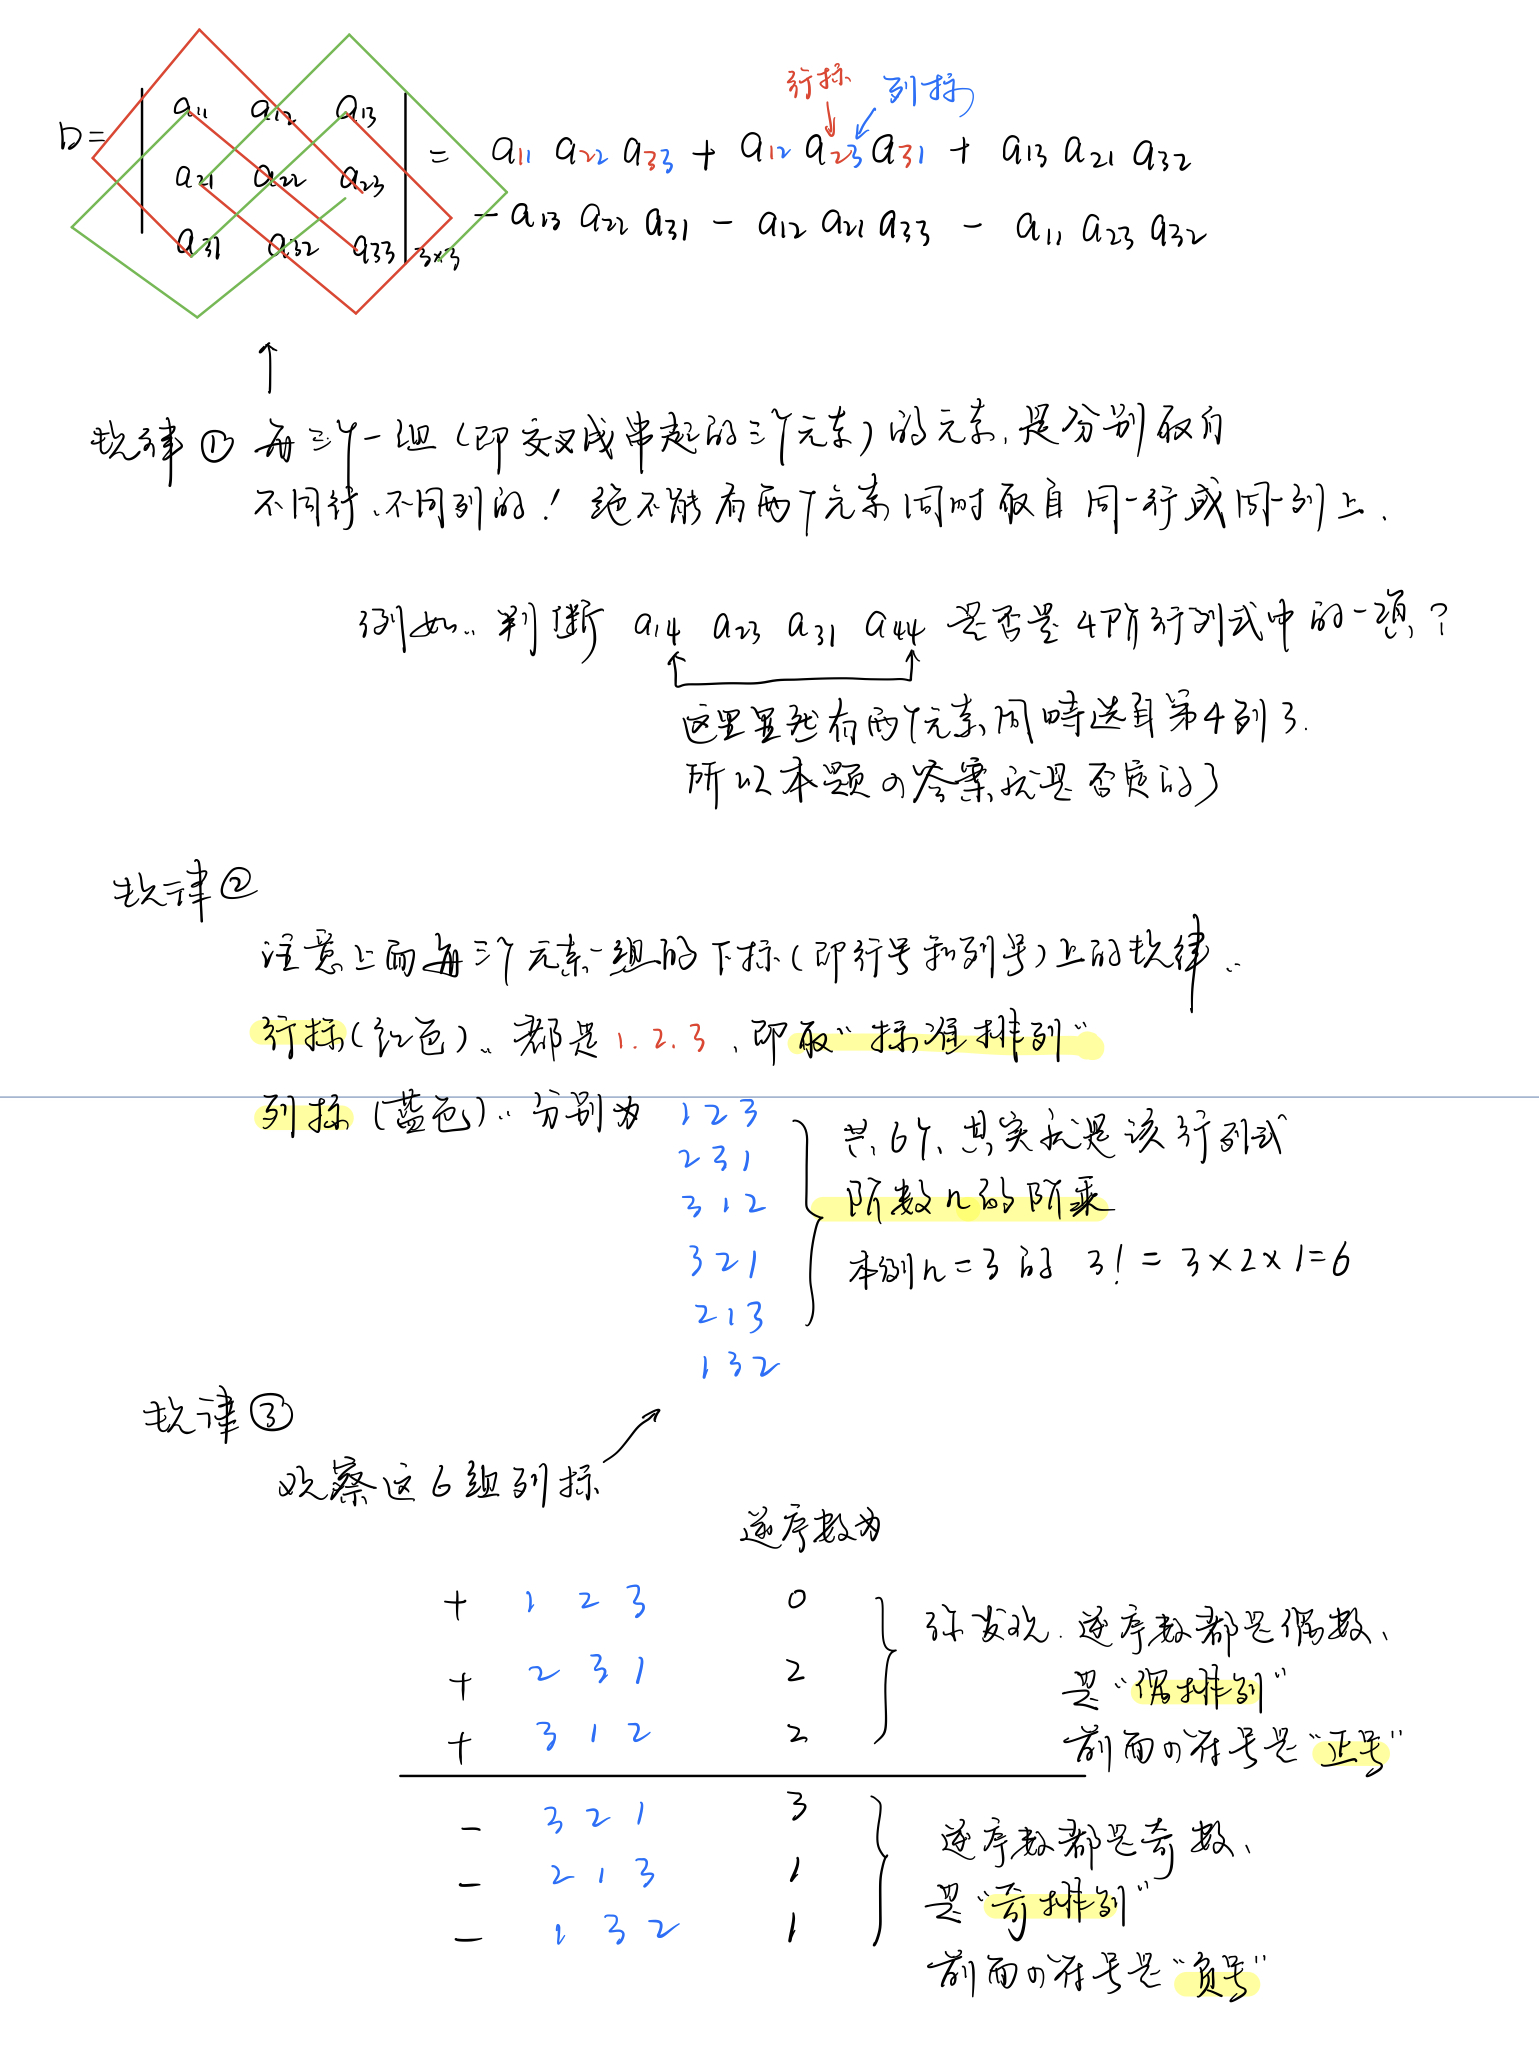 行标 列标
D = | a11 a12 a13 | = a11 a22 a33 + a12 a23 a31 + a13 a21 a32
a21 a22 a23
a31 a32 a33 3×3 - a13 a22 a31 - a12 a21 a33 - a11 a23 a32
规律① 每三个一组(即交叉成串起的三个元素)的元素,是分别取自
不同行、不同列的!绝不能有两个元素同时取自同一行或同一列上.
例如: 判断 a14 a23 a31 a44 是否是4阶行列式中的一项?
这里显然有两个元素同时选自第4列了.
所以本题の答案就是否定的了
规律②
注意上面每三个元素一组的下标(即行号和列号)上的规律:
行标(红色): 都是1.2.3,即取"标准排列"
列标(蓝色): 分别为 1 2 3
2 3 1
3 1 2
3 2 1
2 1 3
1 3 2
共6个,其实就是该行列式
阶数n的阶乘
本例n=3的 3! = 3×2×1=6
规律③
观察这6组列标
逆序数为
+ 1 2 3 0
+ 2 3 1 2
+ 3 1 2 2
你发现.逆序数都是偶数、
是"偶排列"
前面の符号是"正号"
- 3 2 1 3
- 2 1 3 1
- 1 3 2 1
逆序数都是奇数、
是"奇排列"
前面の符号是"负号"